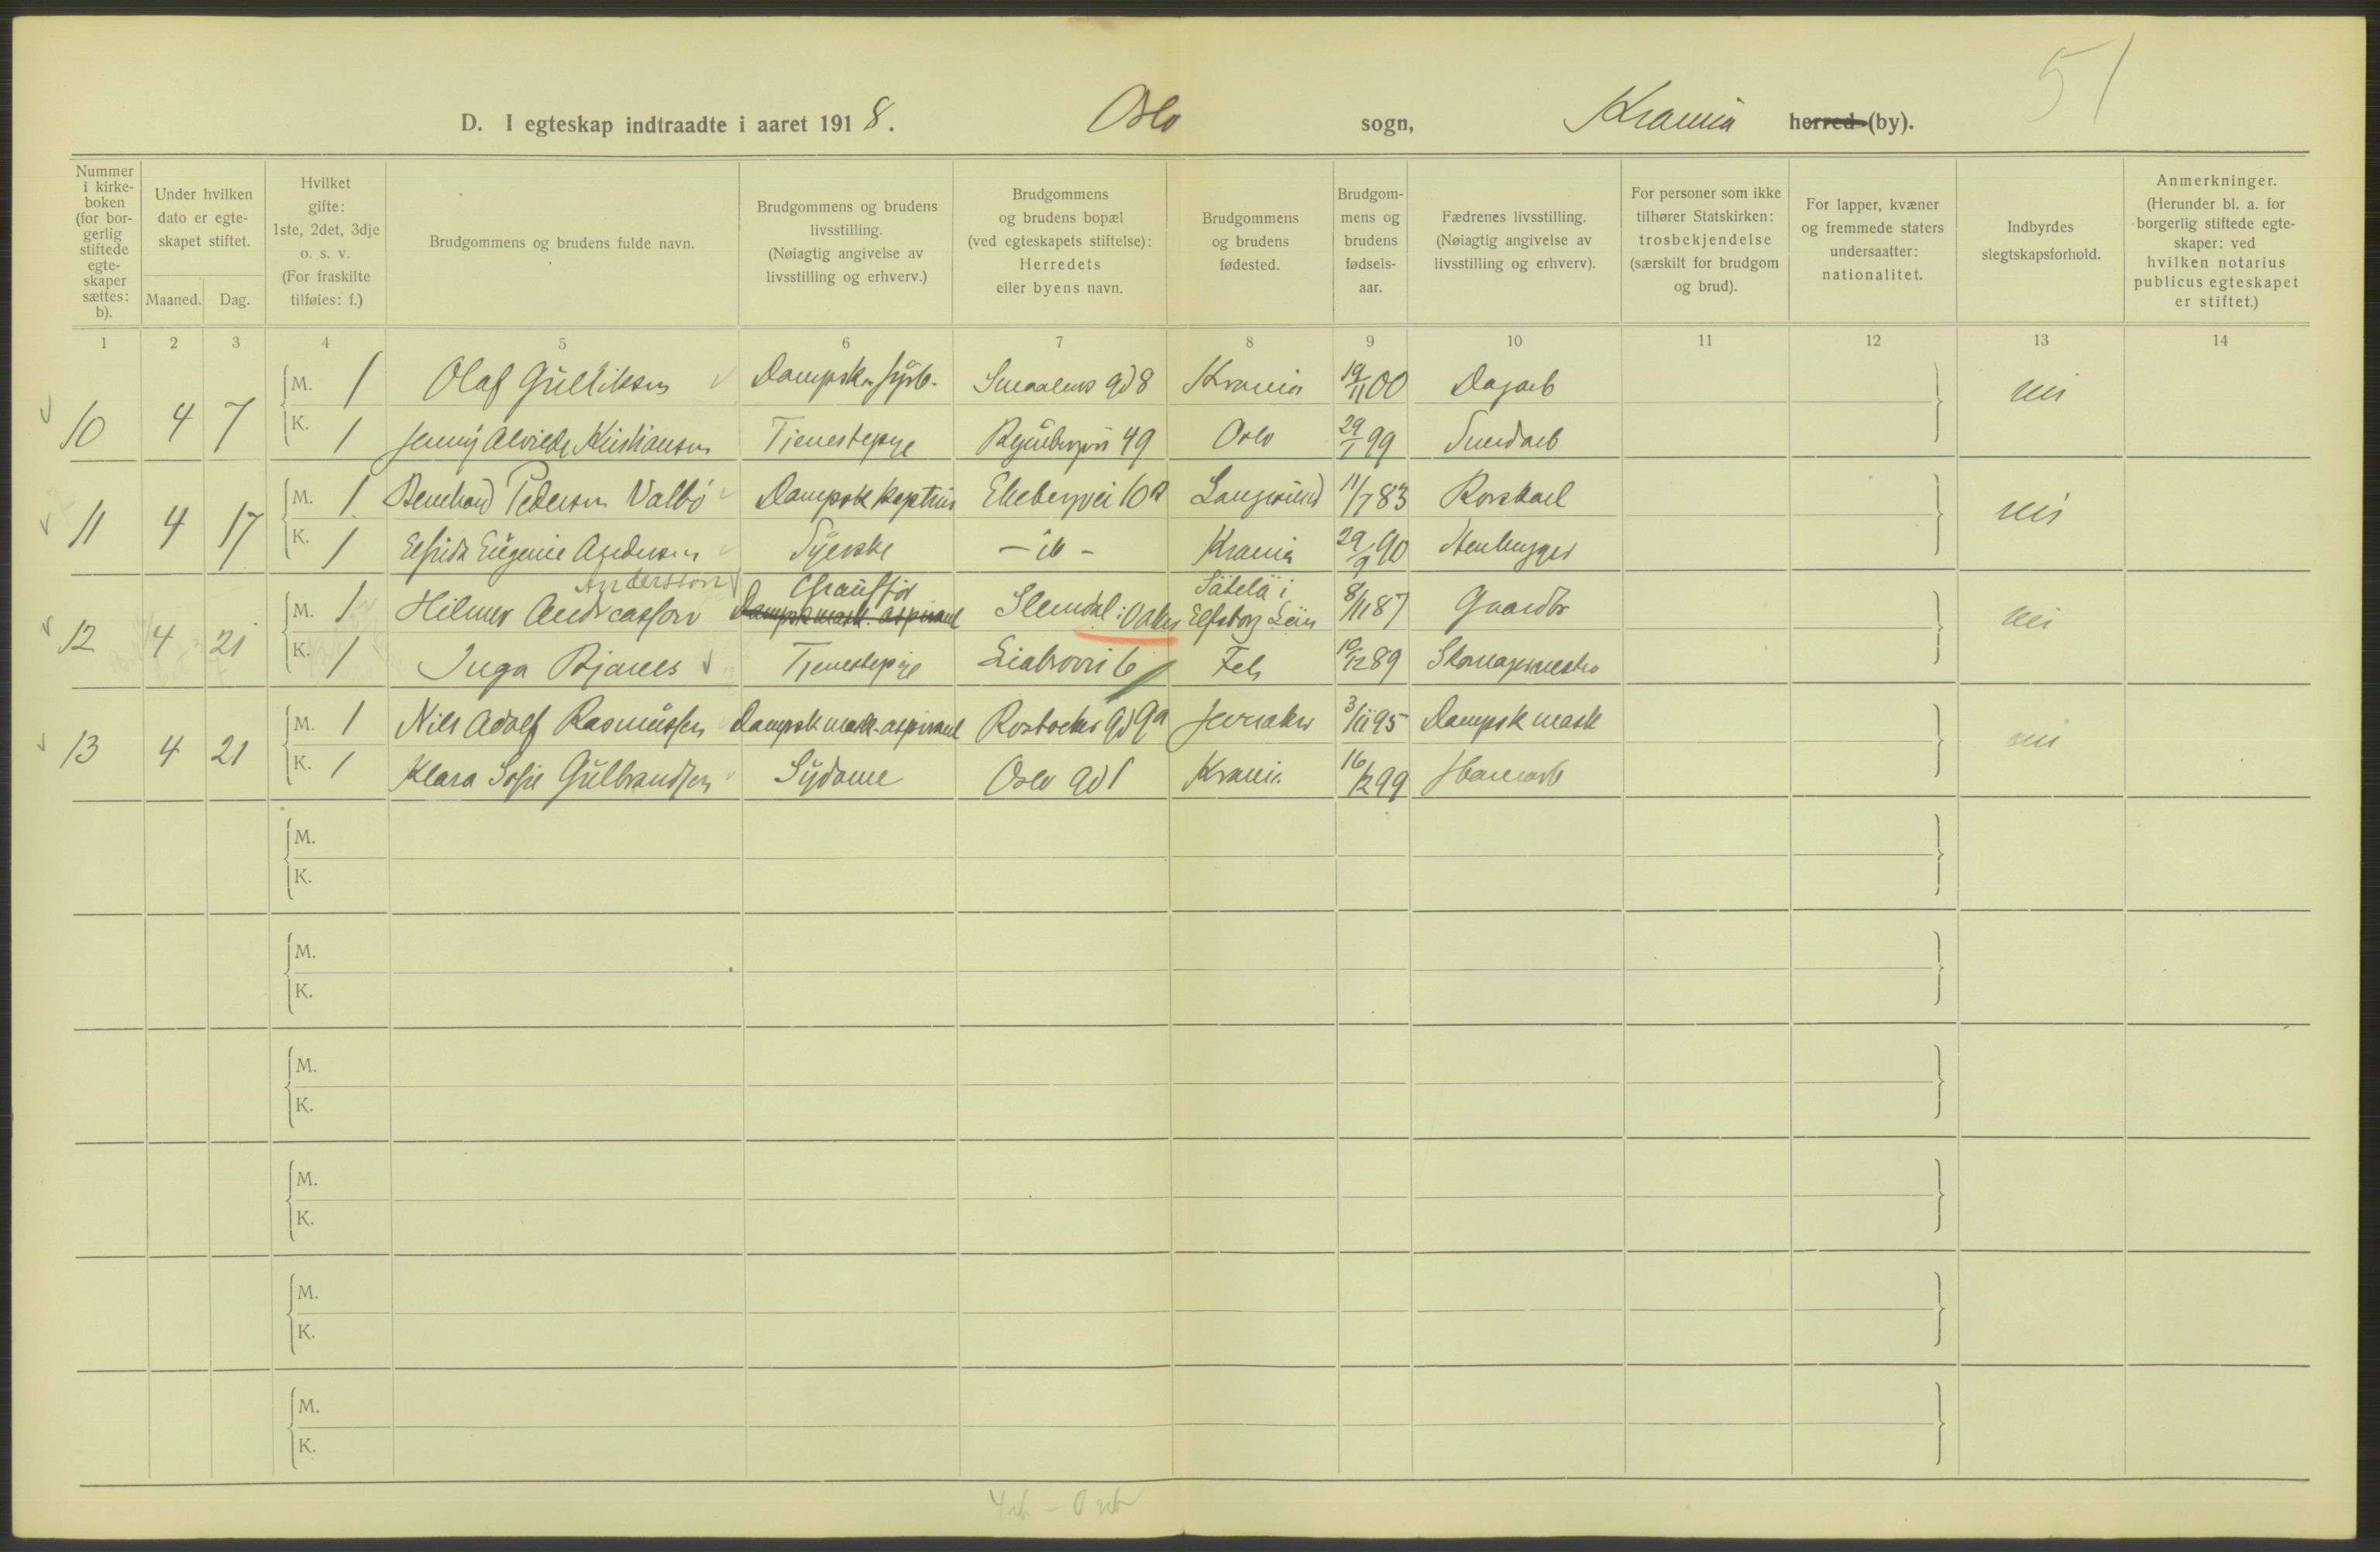 51
D. I egteskap indtraadte i aaret 1918. Oslo sogn, Krania herred (by).
Nummer i kirke-boken (for bor-gerlig stiftede egte-skaper sættes: b).
Under hvilken dato er egte-skapet stiftet.
Maaned. Dag.
Hvilket gifte: 1ste, 2det, 3dje o. s. v. (For fraskilte tilføies: f.)
Brudgommens og brudens fulde navn.
Brudgommens og brudens livsstilling. (Nøiagtig angivelse av livsstilling og erhverv.)
Brudgommens og brudens bopæl (ved egteskapets stiftelse): Herredets eller byens navn.
Brudgommens og brudens fødested.
Brudgom-mens og brudens fødsels-aar.
Fædrenes livsstilling. (Nøiagtig angivelse av livsstilling og erhverv).
For personer som ikke tilhører Statskirken: trosbekjendelse (særskilt for brudgom og brud).
For lapper, kvæner og fremmede staters undersaatter: nationalitet.
Indbyrdes slegtskapsforhold.
Anmerkninger. (Herunder bl. a. for borgerlig stiftede egte-skaper: ved hvilken notarius publicus egteskapet er stiftet.)
1 2 3 4 5 6 7 8 9 10 11 12 13 14
M. 1 Olaf Gulliksen Dampsk. fyrb. Smaalens gd 8 Krania 19/11 00 Dagarb nei
10 4 7
K. 1 Jenny Alvilde Kristiansen Tjenestepge 49 Oslo 29/1 99 Smedarb
M. 1 Bernhard Pedersen Valbö Dampsk kaptein Ekebergvei 10 Langesund 11/7 83 Rorskarl nei
11 4 17
K. 1 Elfrida Eugenie Andersen Syerske - " - Krania 29/9 90 Stenhugger
Andersson Chauffør Sätelä i
M. 1 Hilmer Andreasson Dampsk mask. aspirant Slemdal i V Aker Elfsborg Län 8/11 87 Gaardbr nei
12 4 21
K. 1 Inga Bjanes Tjenestepige 6 10/12 89 Skomagermester
M. 1 Nils Adolf Rasmussen Dampsk mask. aspirant Rostocker gd 9a Jevnaker 3/11 95 Dampsk mask nei
13 4 21
K. 1 Klara Sofie Gulbrandsen Sydame Oslo gd 1 Krania 16/12 99 Havnearb
M.
K.
M.
K.
M.
K.
M.
K.
M.
K.
M.
K.